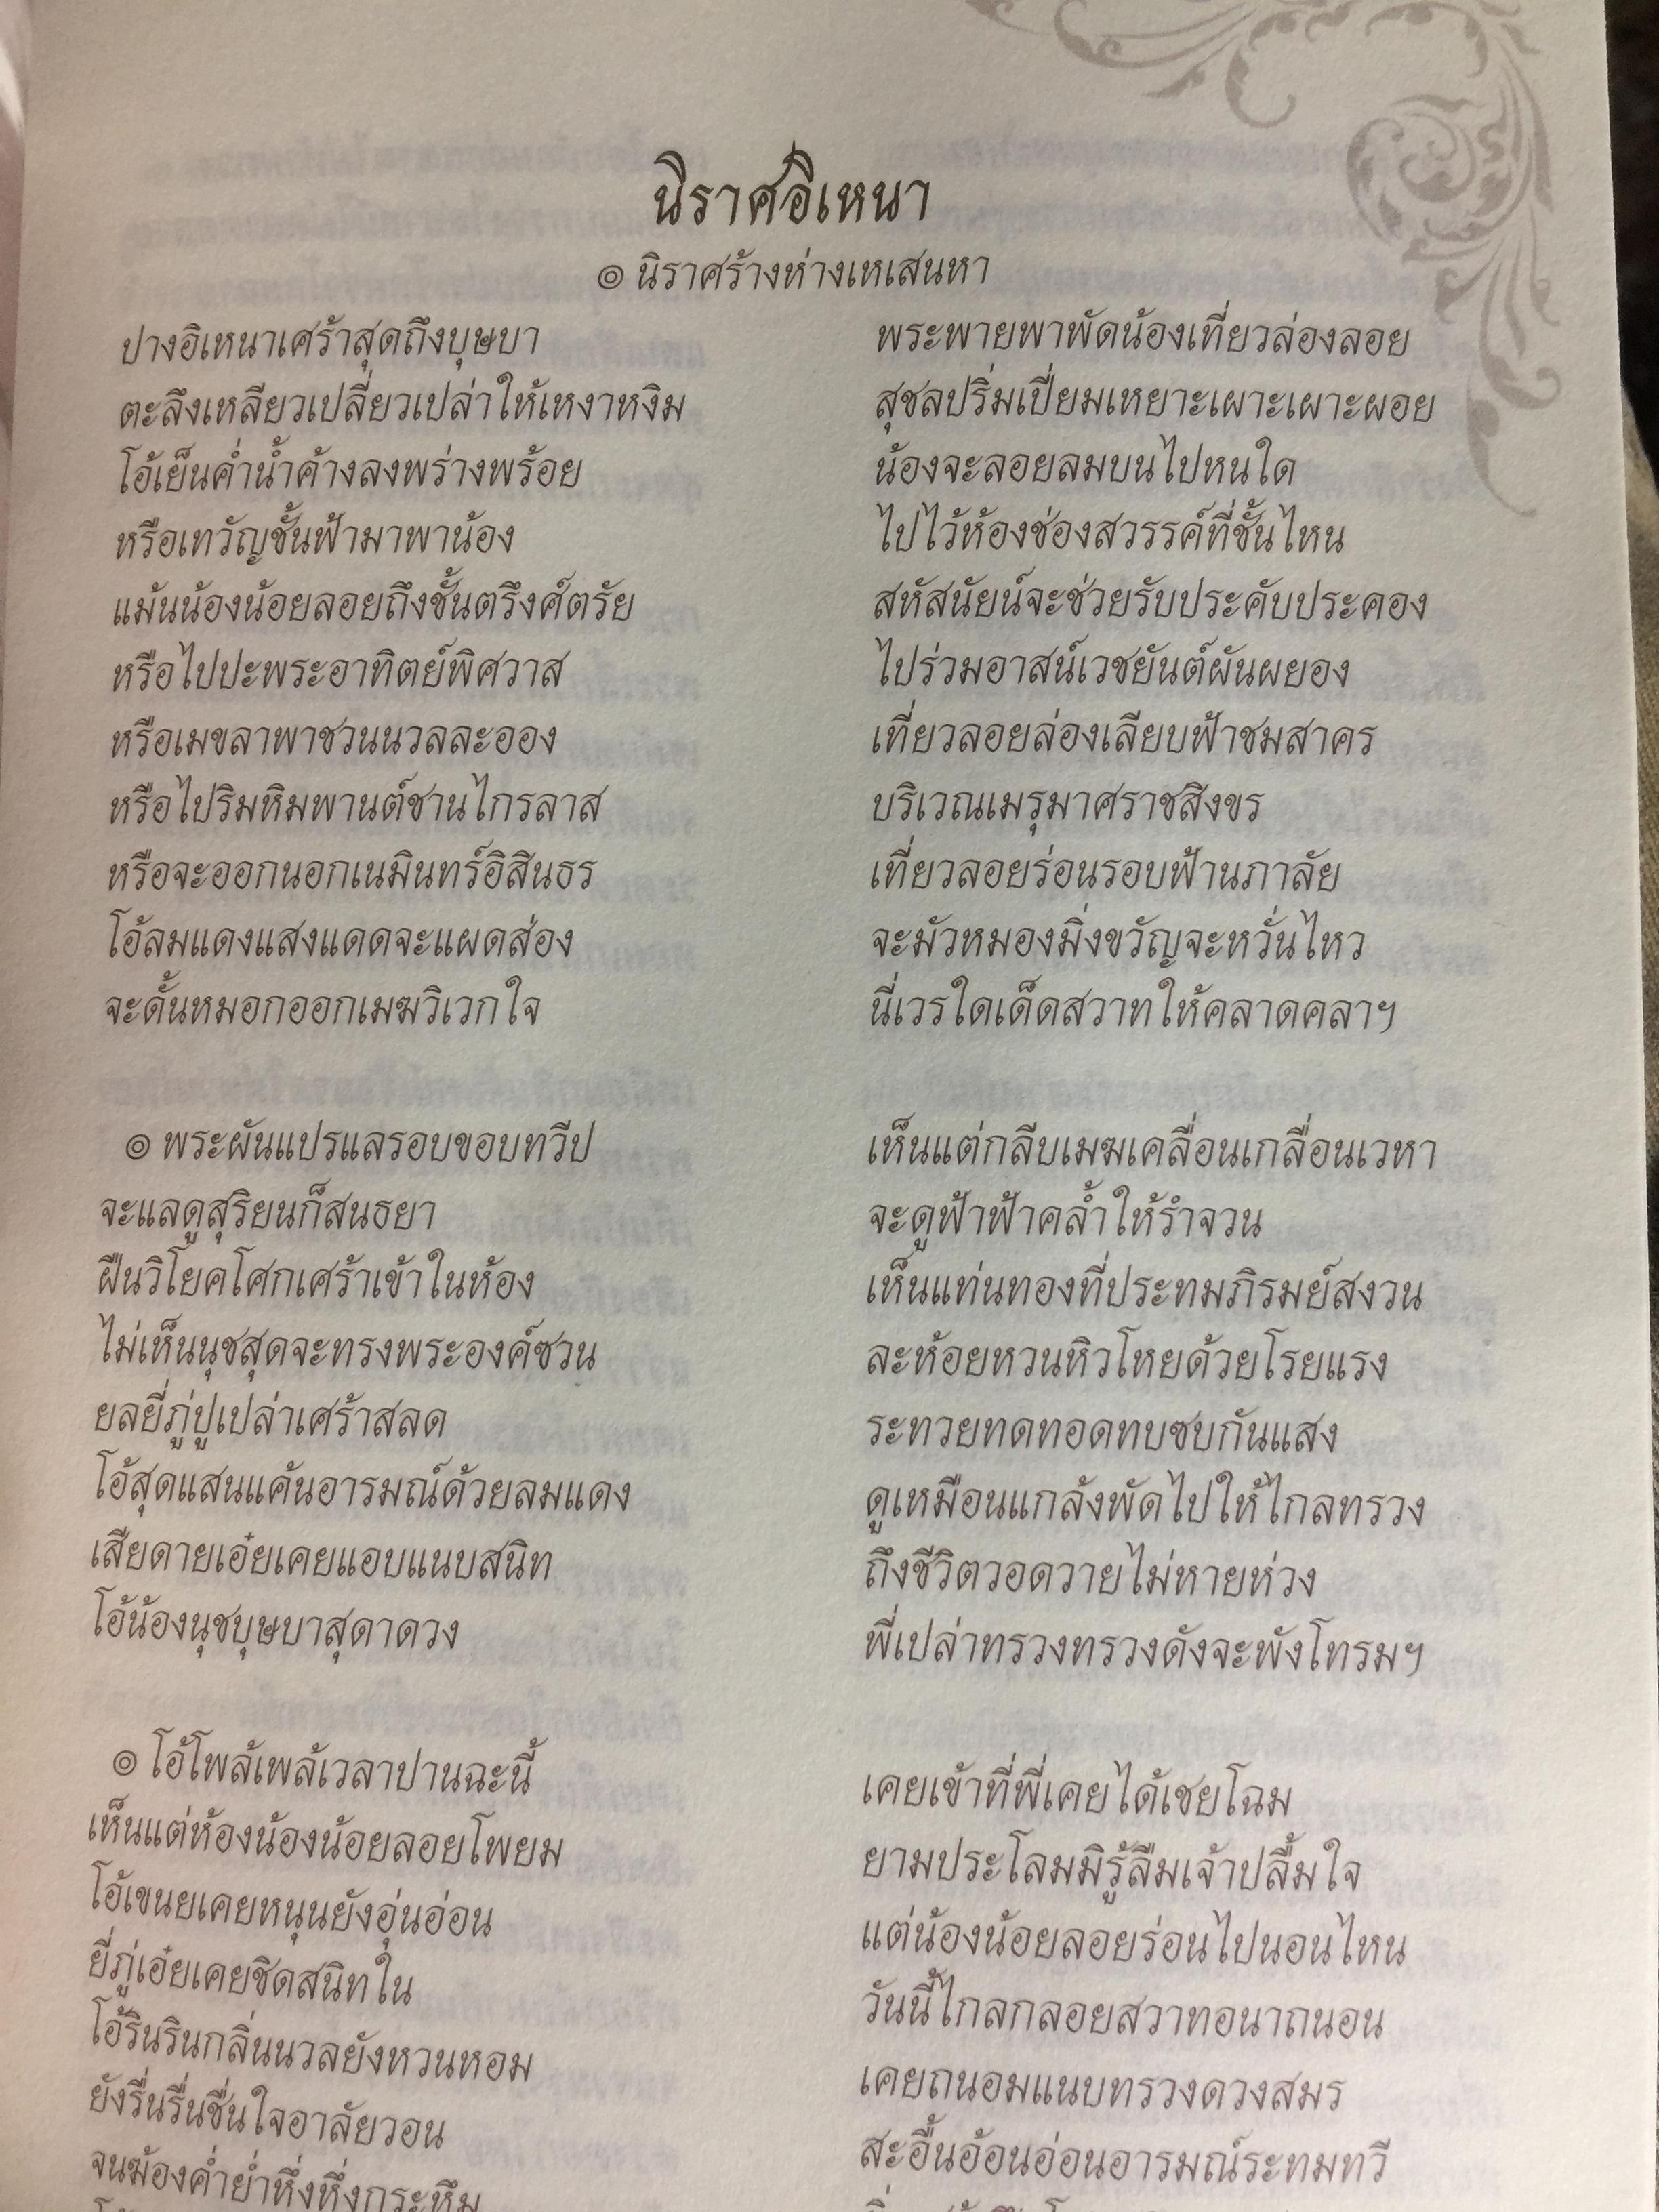 นิราศอิเหนา
๏ นิราศร้างห่างเหเสนหา
ปางอิเหนาเศร้าสุดถึงบุษบา พระพายพาพัดน้องเที่ยวล่องลอย
ตะลึงเหลียวเปลี่ยวเปล่าให้เหงาหงิม สุชลปริ่มเปี่ยมเหยาะเผาะเผาะผอย
โอ้เย็นค่ำน้ำค้างลงพร่างพร้อย น้องจะลอยลมบนไปหนใด
หรือเทวัญชั้นฟ้ามาพาน้อง ไปไว้ห้องช่องสวรรค์ที่ชั้นไหน
แม้นน้องน้อยลอยถึงชั้นตรึงศ์ตรัย สหัสนัยน์จะช่วยรับประคับประคอง
หรือไปปะพระอาทิตย์พิศวาส ไปร่วมอาสน์เวชยันต์ผันผยอง
หรือเมขลาพาชวนนวลละออง เที่ยวลอยล่องเลียบฟ้าชมสาคร
หรือไปริมหิมพานต์ชานไกรลาส บริเวณเมรุมาศราชสิงขร
หรือจะออกนอกเนมินทร์อิสินธร เที่ยวลอยร่อนรอบฟ้านภาลัย
โอ้ลมแดงแสงแดดจะแผดส่อง จะมัวหมองมิ่งขวัญจะหวั่นไหว
จะดั้นหมอกออกเมฆวิเวกใจ นี่เวรใดเด็ดสวาทให้คลาดคลาฯ
๏ พระผันแปรแลรอบขอบทวีป เห็นแต่กลีบเมฆเคลื่อนเกลื่อนเวหา
จะแลดูสุริยนก็สนธยา จะดูฟ้าฟ้าคล้ำให้รำจวน
ฝืนวิโยคโศกเศร้าเข้าในห้อง เห็นแท่นทองที่ประทมภิรมย์สงวน
ไม่เห็นนุชสุดจะทรงพระองค์ซวน ละห้อยหวนหิวโหยด้วยโรยแรง
ยลยี่ภู่ปูเปล่าเศร้าสลด ระทวยทดทอดทบซบกันแสง
โอ้สุดแสนแค้นอารมณ์ด้วยลมแดง ดูเหมือนแกล้งพัดไปให้ไกลทรวง
เสียดายเอ๋ยเคยแอบแนบสนิท ถึงชีวิตวอดวายไม่หายห่วง
โอ้น้องนุชบุษบาสุดาดวง พี่เปล่าทรวงทรวงดังจะพังโทรมฯ
๏ โอ้โพล้เพล้เวลาปานฉะนี้ เคยเข้าที่พี่เคยได้เชยโฉม
เห็นแต่ห้องน้องน้อยลอยโพยม ยามประโลมมิรู้ลืมเจ้าปลื้มใจ
โอ้เขนยเคยหนุนยังอุ่นอ่อน แต่น้องน้อยลอยร่อนไปนอนไหน
ยี่ภู่เอ๋ยเคยชิดสนิทใน วันนี้ไกลกลอยสวาทอนาถนอน
โอ้รินรินกลิ่นนวลยังหวนหอม เคยถนอมแนบทรวงดวงสมร
ยังรื่นรื่นชื่นใจอาลัยวอน สะอื้นอ้อนอ่อนอารมณ์ระทมทวี
จนฆ้องค่ำย่ำหึ่งหึ่งกระหึม